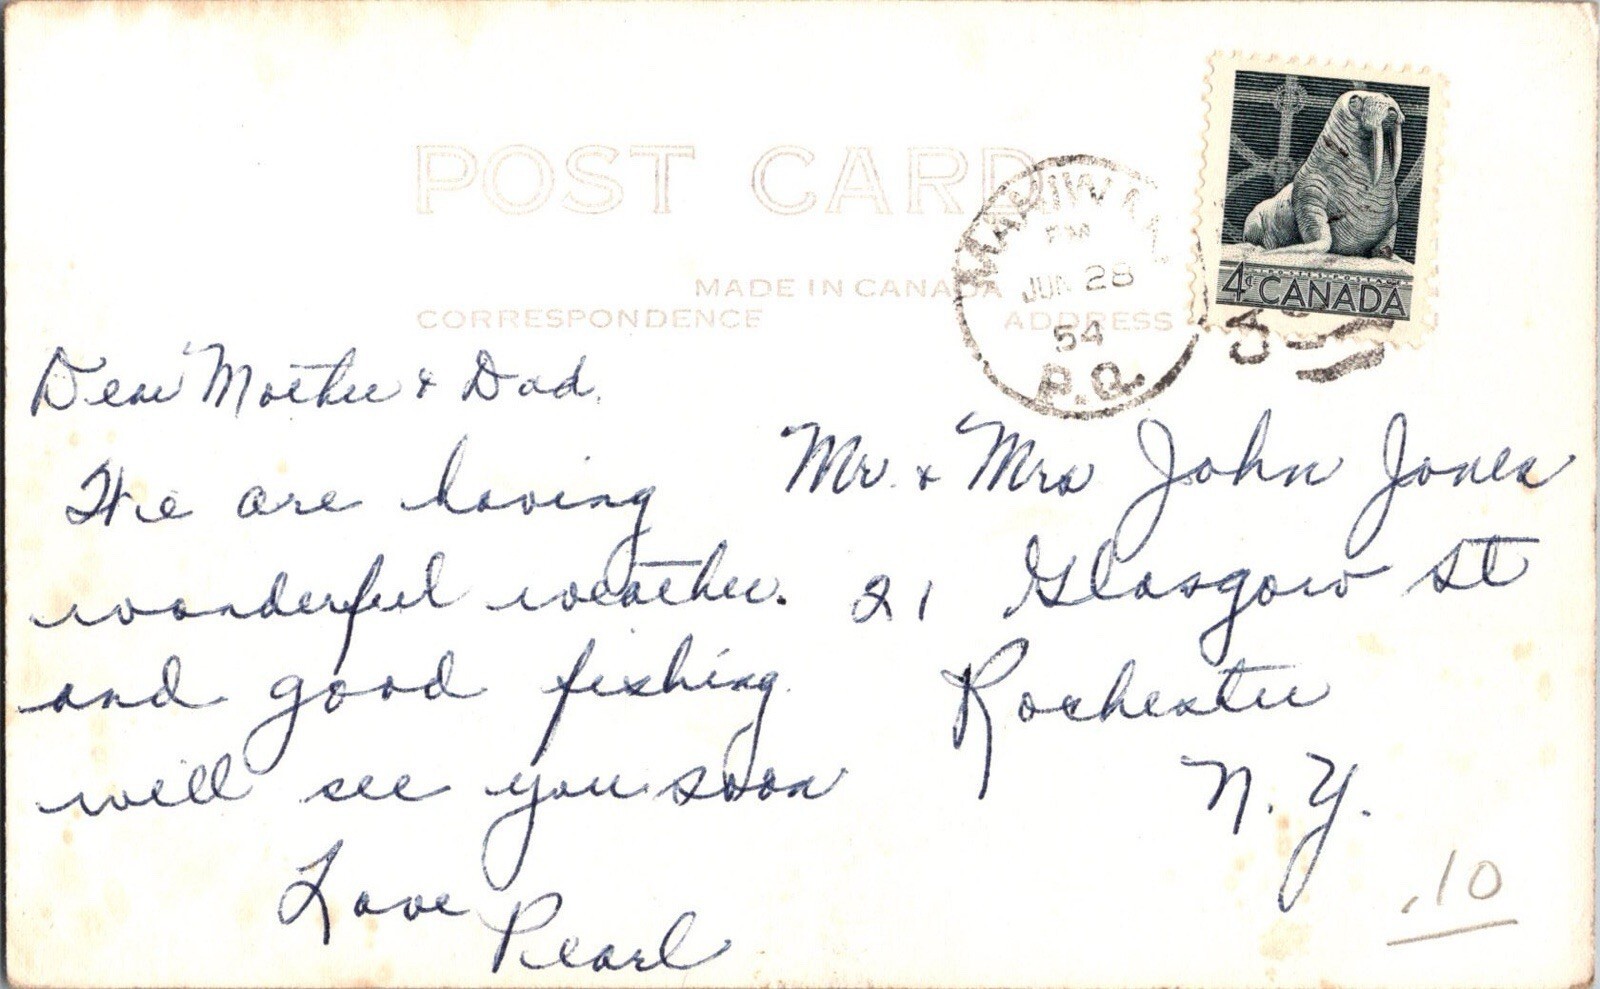 POST CARD
MADE IN CANADA
CORRESPONDENCE
ADDRESS
MANIWAKI
PM
JUN 28
54
P.Q.
CANADA
POSTES POSTAGE
4¢ CANADA
Dear Mother & Dad.
We are having
wonderful weather.
and good fishing.
will see you soon
Love
Pearl
Mr. & Mrs John Jones
21 Glasgow St
Rochester
N. Y.
.10